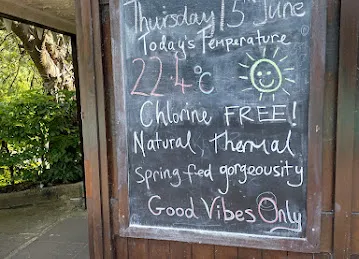 Thursday 15th June
Today's Temperature
22.4°C
Chlorine FREE!
Natural, Thermal
Spring fed gorgeousity
Good Vibes Only